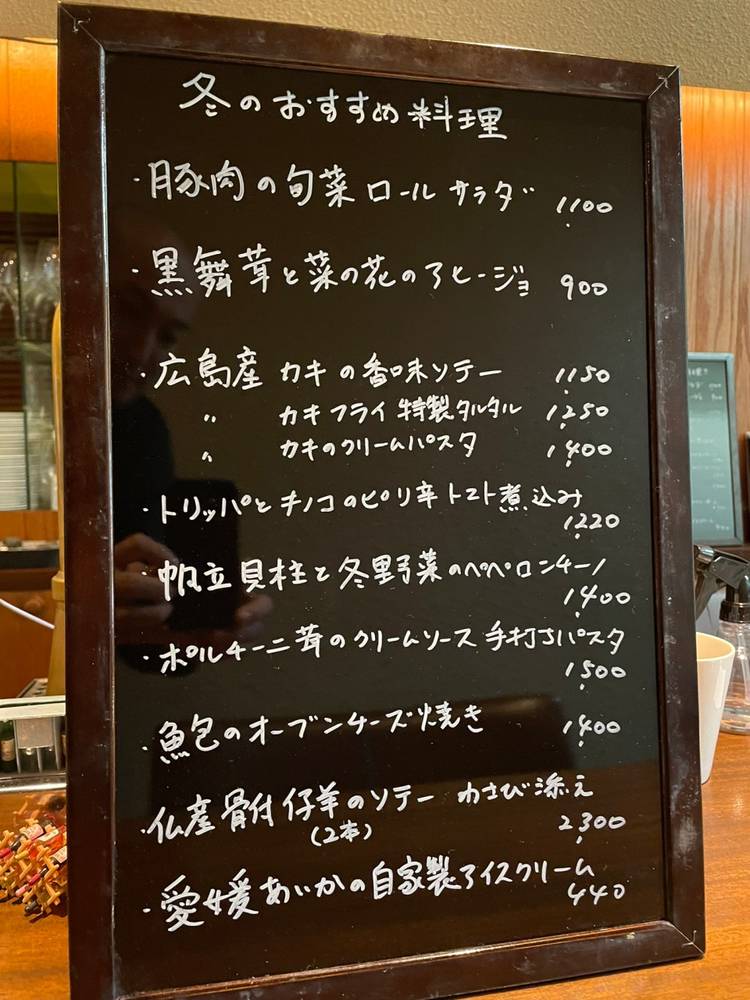 冬のおすすめ料理
・豚肉の旬菜ロールサラダ 1,100
・黒舞茸と菜の花のアヒージョ 900
・広島産 カキの香味ソテー 1,150
〃 カキフライ特製タルタル 1,250
〃 カキのクリームパスタ 1,400
・トリッパとキノコのピリ辛トマト煮込み
1,220
・帆立貝柱と冬野菜のペペロンチーノ
1,400
・ポルチーニ茸のクリームソース 手打ちパスタ
1,500
・鮑のオーブンチーズ焼き 1,400
・仏産骨付仔羊のソテー わさび添え
(2本) 2,300
・愛媛あいかの自家製アイスクリーム
440